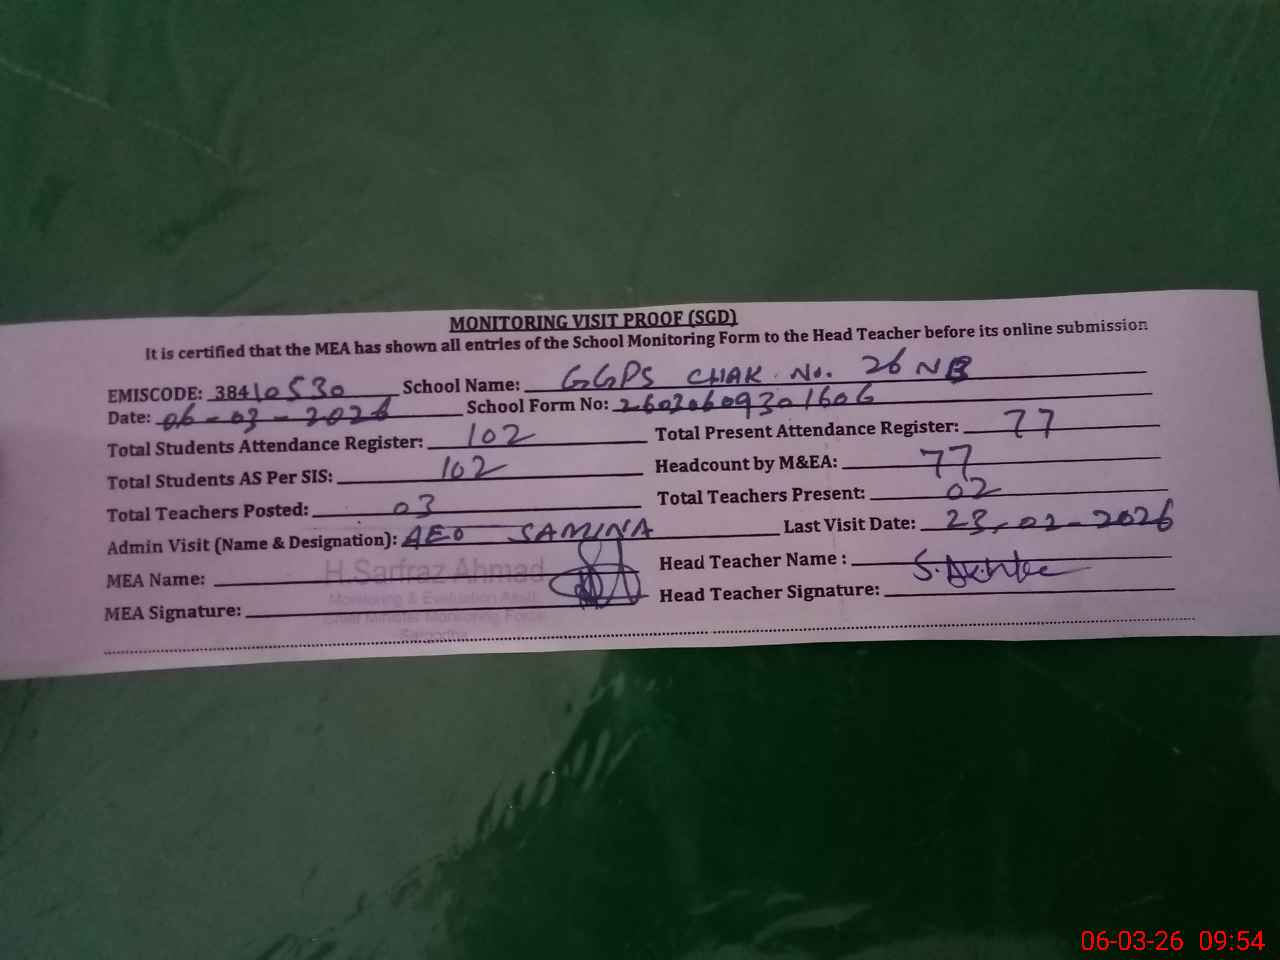 MONITORING VISIT PROOF (SGD)
It is certified that the MEA has shown all entries of the School Monitoring Form to the Head Teacher before its online submission
EMISCODE: 38410530 School Name: GGPS CHAK No. 26 NB
Date: 06-03-2026 School Form No: 26030609301606
Total Students Attendance Register: 102 Total Present Attendance Register: 77
Total Students AS Per SIS: 102 Headcount by M&EA: 77
Total Teachers Posted: 03 Total Teachers Present: 02
Admin Visit (Name & Designation): AEO SAMINA Last Visit Date: 23-02-2026
MEA Name: H.Sarfraz Ahmad Head Teacher Name : S. Akhter
Monitoring & Evaluation Asstt.
MEA Signature: Head Teacher Signature:
Chief Minister Monitoring Force
Sargodha
06-03-26 09:54